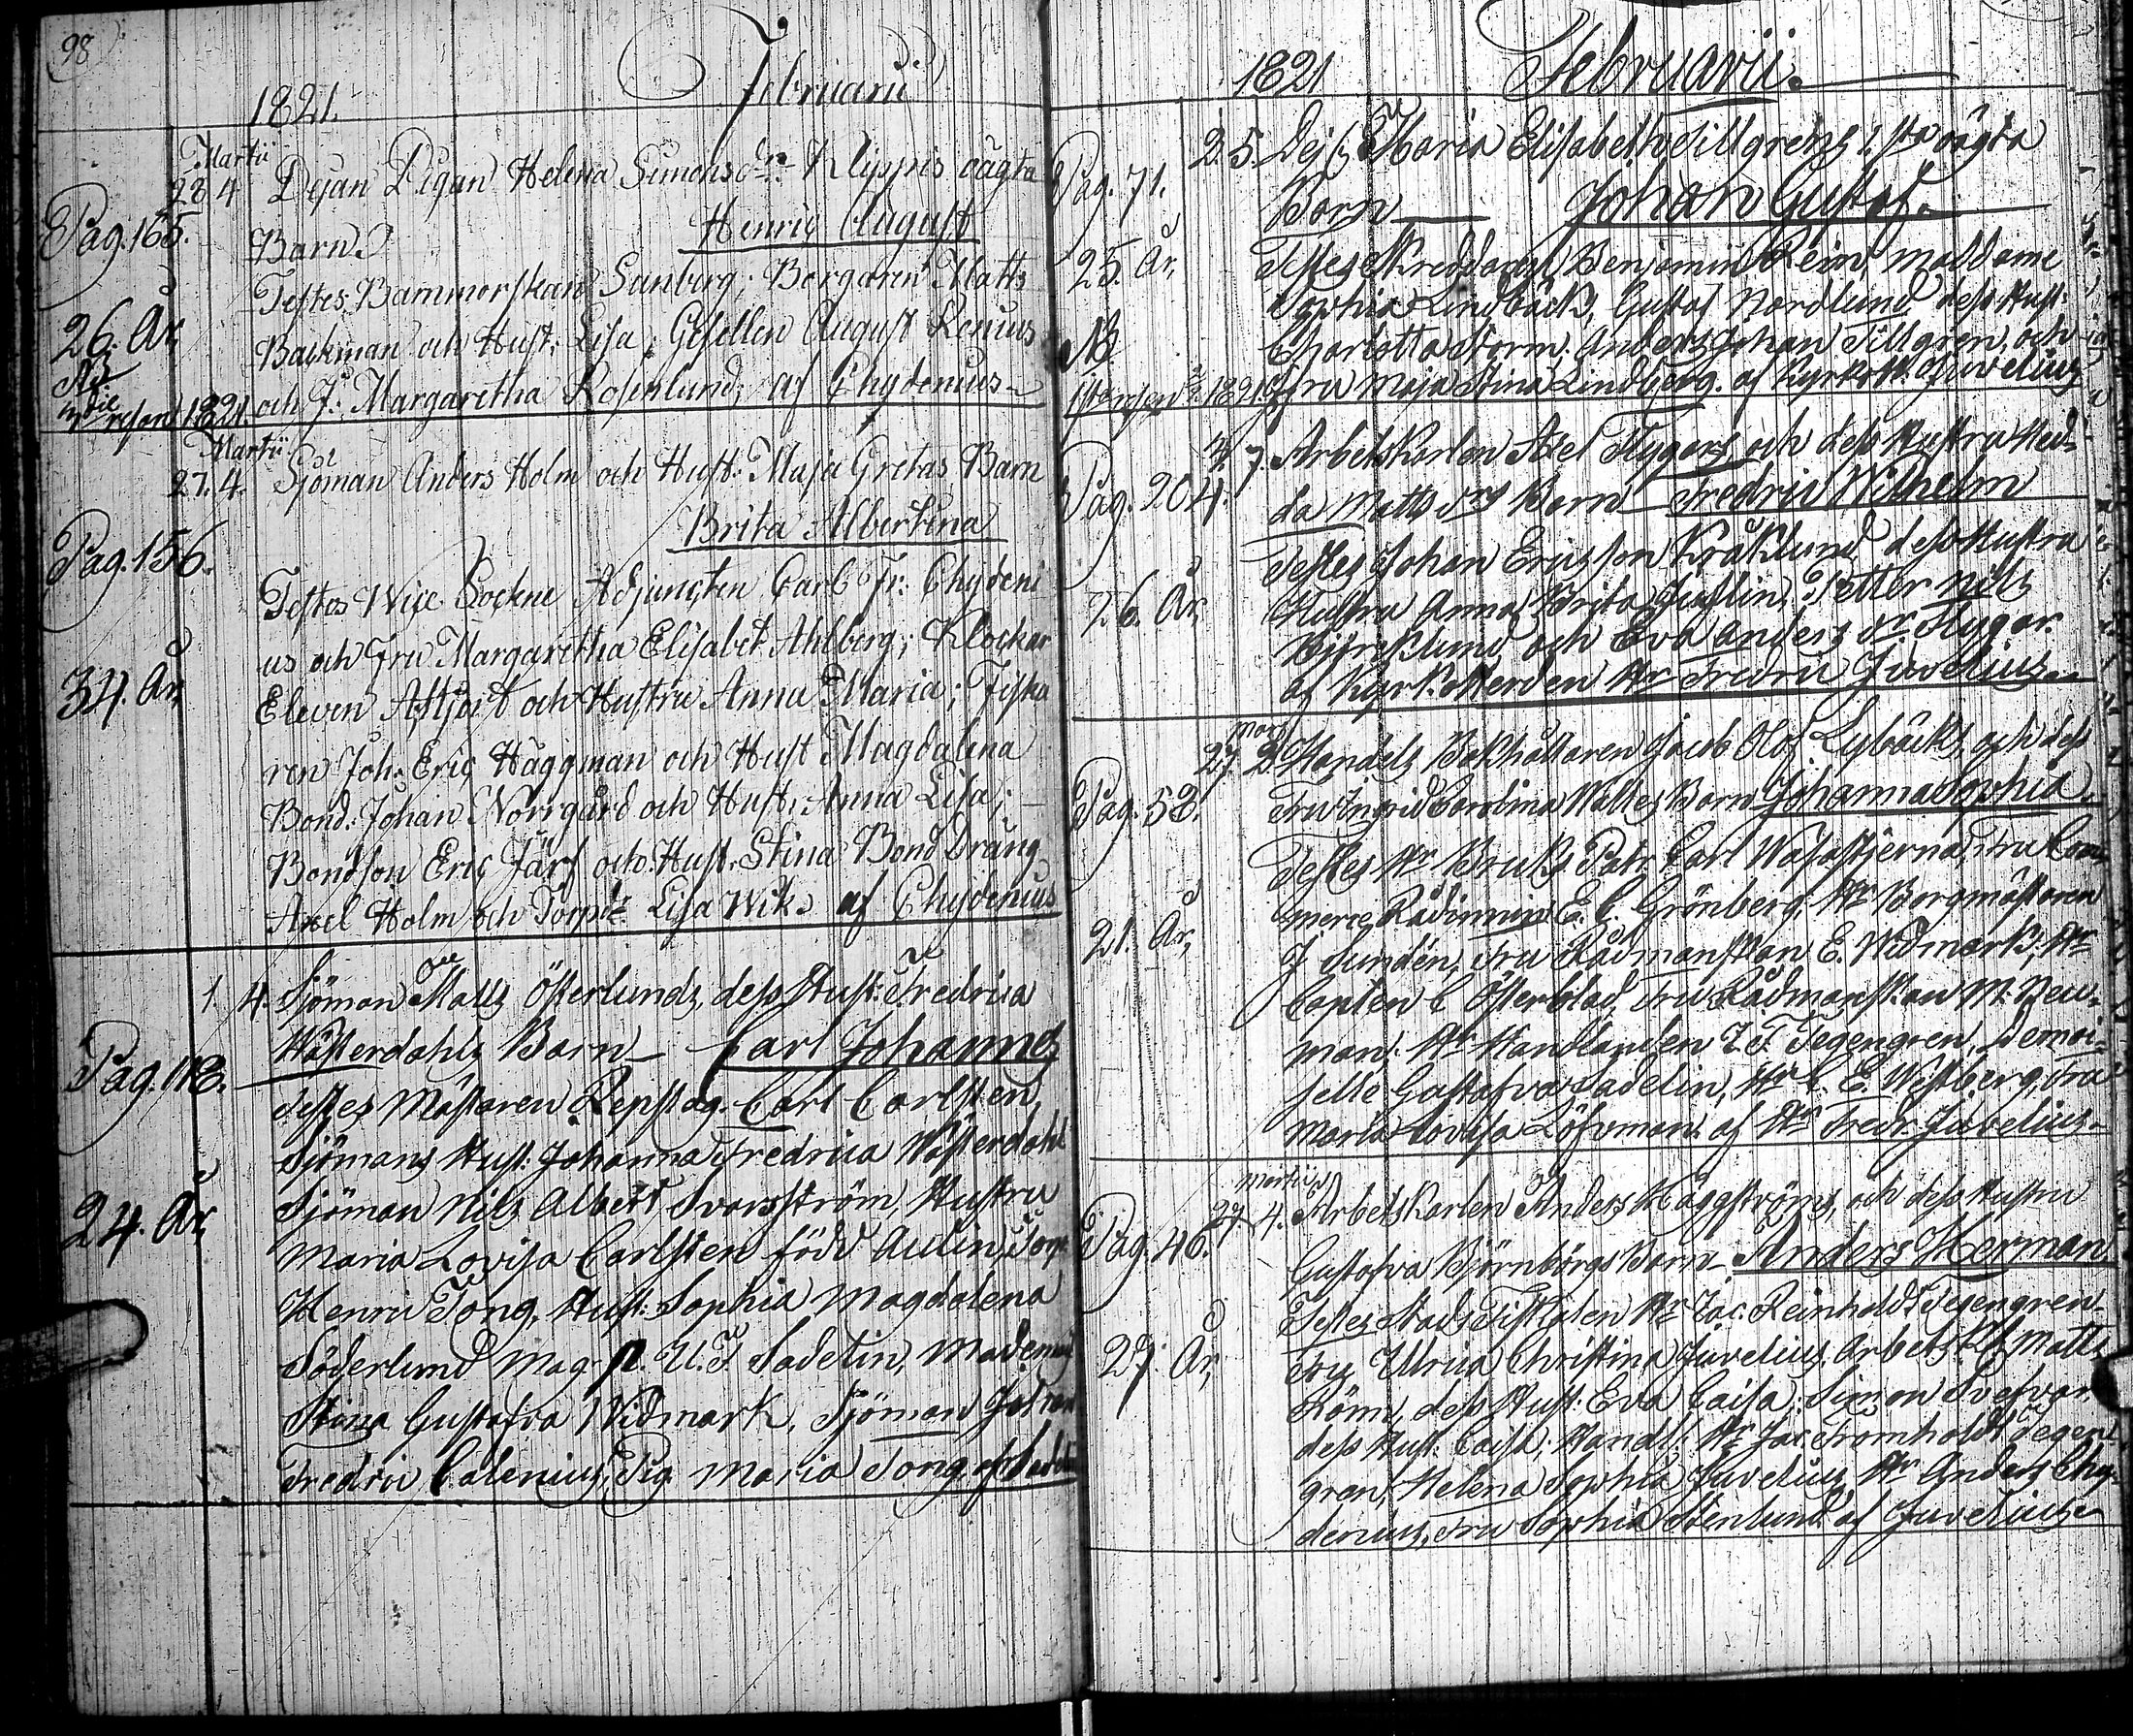 98
1821. Februarii
Martii
28 4 Dejan Pigan Helena Simonsdr Klippis oägta
Pag. 165. Barn
Henric August
Testes: Barnmorskan Sanberg; Borgaren Matts
26. År, Backman och Hust. Lisa; Gesellen August Renius
1821. och J. Margaretha Rosenlund; af Chydenius
Martii
27. 4. Sjöman Anders Holm och Hust. Maja Gretas Barn
Brita Albertina
Pag. 156.
Testes Wice Sockne Adjuncten Carl Fr: Chydeni
us och Fru Margaretha Elisabet Ahlberg; Klockar
34. År, Eleven och Hustru Anna Maria; Fiska
ren Joh. Eric Häggman och Hust Magdalena
Bond. Johan Norrgård och Hust. Anna Lisa;
Bondson Eric Järf och Hust. Stina Bond Dräng
Axel Holm och Lisa Wik af Chydenius
1. 4. Sjöman Matts Österlunds, dess Hust: Fredrica
Wästerdahls Barn Carl Johannes
Pag. 113.
Testes Mästaren Repslag. Carl Carlsten,
Sjömans Hust: Johanna Fredrica Wästerdahl
24. År, Sjöman Nils Albert Svarfström, Hustru
Maria Lovisa Carlsten född Aulin,
Henric Tong, Hust: Sophia Magdalena
Söderlund Mag. U. F. Sadelin,
Stina Gustafva Widmark, Sjöman Johan
Fredric Calenius, Pig. Maria Tong,
1821 Februarii.
25. Maria Elisabeth Tillgrens 1:sta oägta
Pag. 71. Barn Johan Gustaf.
25. År, Testes Skreddaren Benjamin Rein,
Sophia Lindbäck, Gustaf Nordlund dess Hust:
NB Charlotta Storm: Anders Johan Tillgren, och
1821. Fru Maja Stina Lindberg. af Juvelius
7. Arbetskarlen Axel Flygars och dess Hustru Hed-
Pag. 204. da Mattsdrs Barn Fredric Wilhelm
Testes Johan Ericsson Kråklund dess Hustru
26. År, Hustru Anna Brita Juslin, Petter Nils
och Eva Andersdr Flygar.
af Kyrk.Herden Hr Fredric Juvelius
Mart
27. 2. Handels Bokhållaren Jacob Olof Lybäcks, och dess
Pag. 53. Fru Ingrid Carolina Barn Johanna Sophia.
Testes Hr Bruks Patr. Carl Wasastjerna, Fru Com-
merce Rådinnin E. C. Grönberg, Hr Borgmästaren
21. År, J Sundén, Fru Rådmanskan E. Widmark, Hr
Capten C Österblad, Fru Rådmanskan M. Neu-
man. Hr Handlanden J. F. Tegengren, Demoi-
selle Gustafva Sadelin, Hr C. E. Westberg, Fru
Maria Lovisa Löfvman. af Hr Fredr. Juvelius.
Martii
27 4. Arbetskarlen Anders Häggströms, och dess Hustru
Pag. 46. Gustafva Björnbörgs Barn Anders Herman
Testes Stads Fiskalen Hr Jac. Reinhold Tegengren
27. År, Fru Ulrica Christina Juvelius. Arbets Matts
dess Hust: Eva Caisa; Simon
dess Hust. Caisa; Handl: Hr Jac. Fromholdt Tegen-
gren, Helena Sophia Juvelius, Hr Anders Chy-
denius, Fru Sophia Stenlund af Juvelius